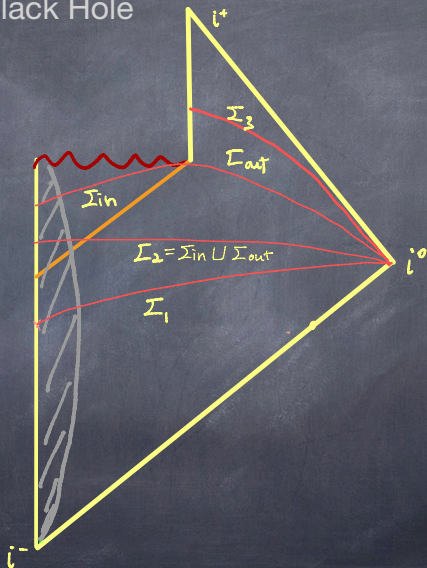 lack Hole
i⁺
Σ₃
Σout
Σin
Σ₂ = Σin ∪ Σout
i⁰
Σ₁
i⁻